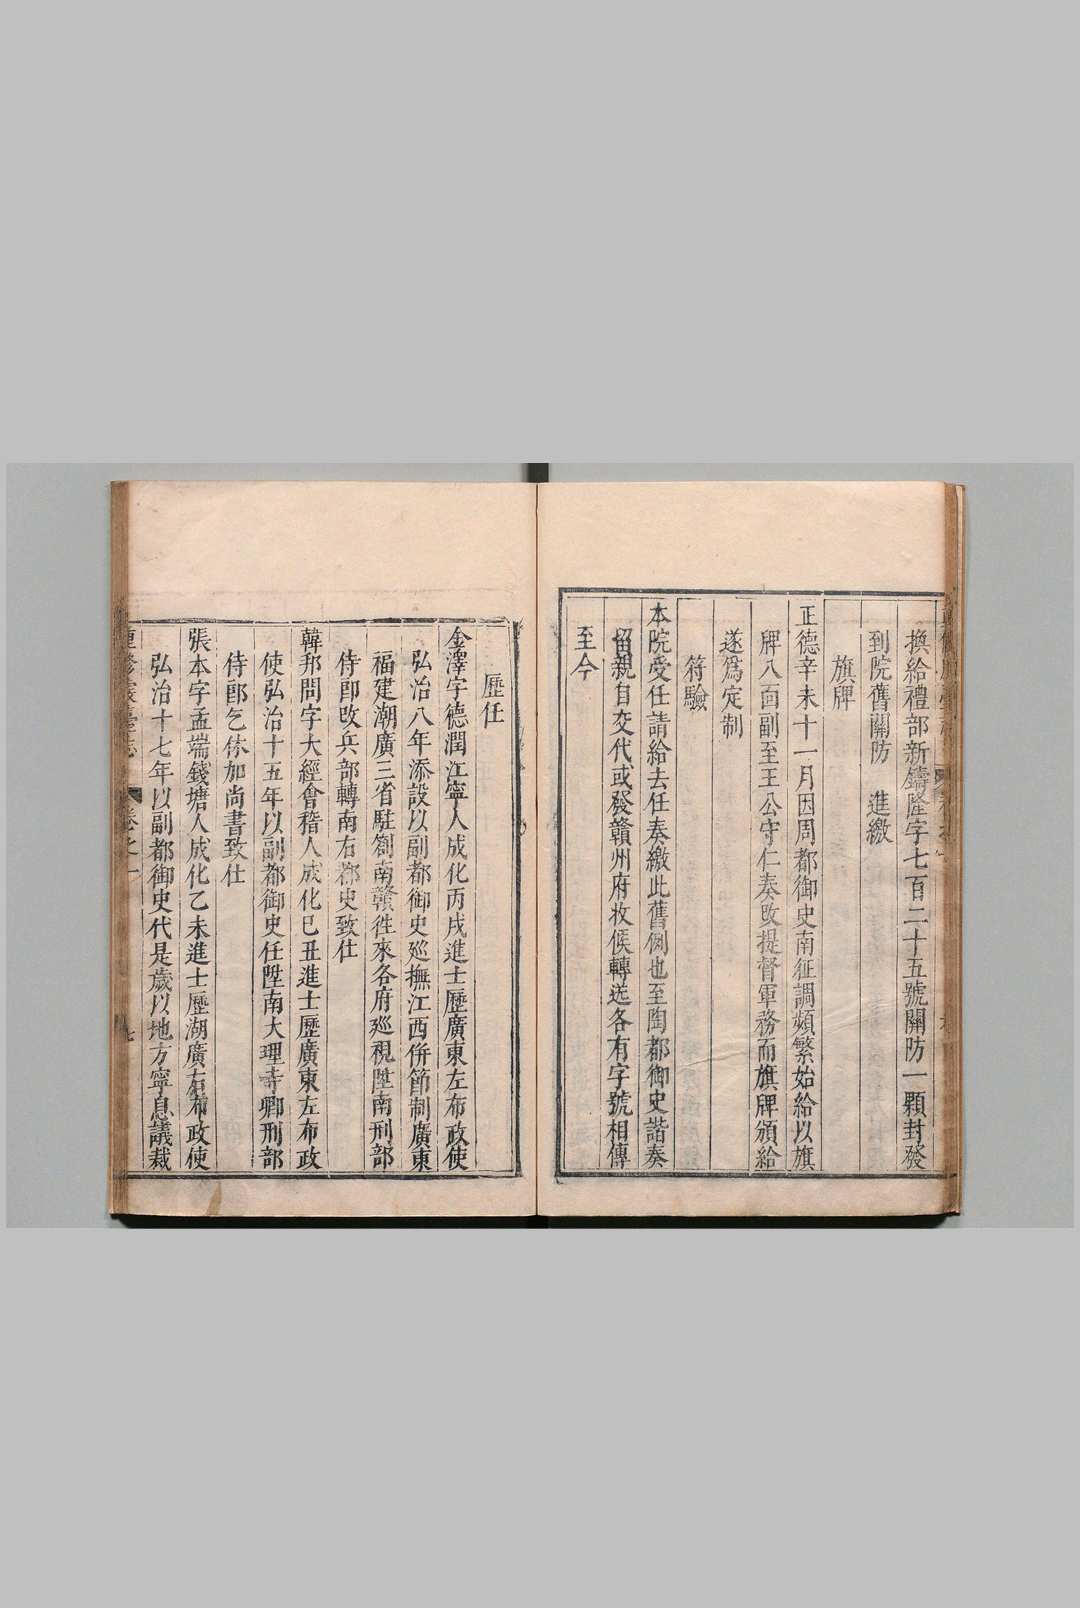 換給禮部新鑄隆字七百二十五號關防一顆封發
到院舊關防　進繳
旗牌
正德辛未十一月因周都御史南征調頻繁始給以旗
牌八面副至王公守仁奏改提督軍務而旗牌頒給
遂爲定制
符驗
本院受任請給去任奏繳此舊例也至陶都御史諧奏
留親自交代或發贛州府收候轉送各有字號相傳
至今
歷任
金澤字德潤江寧人成化丙戌進士歷廣東左布政使
弘治八年添設以副都御史廵撫江西併節制廣東
福建湖廣三省駐劄南贛徃來各府廵視陞南刑部
侍郎改兵部轉南右都史致仕
韓邦問字大經會稽人成化己丑進士歷廣東左布政
使弘治十五年以副都御史任陞南大理寺卿刑部
侍郎乞休加尚書致仕
張本字孟端錢塘人成化乙未進士歷湖廣右布政使
弘治十七年以副都御史代是歲以地方寧息議裁
重修虔臺志　卷之一　七